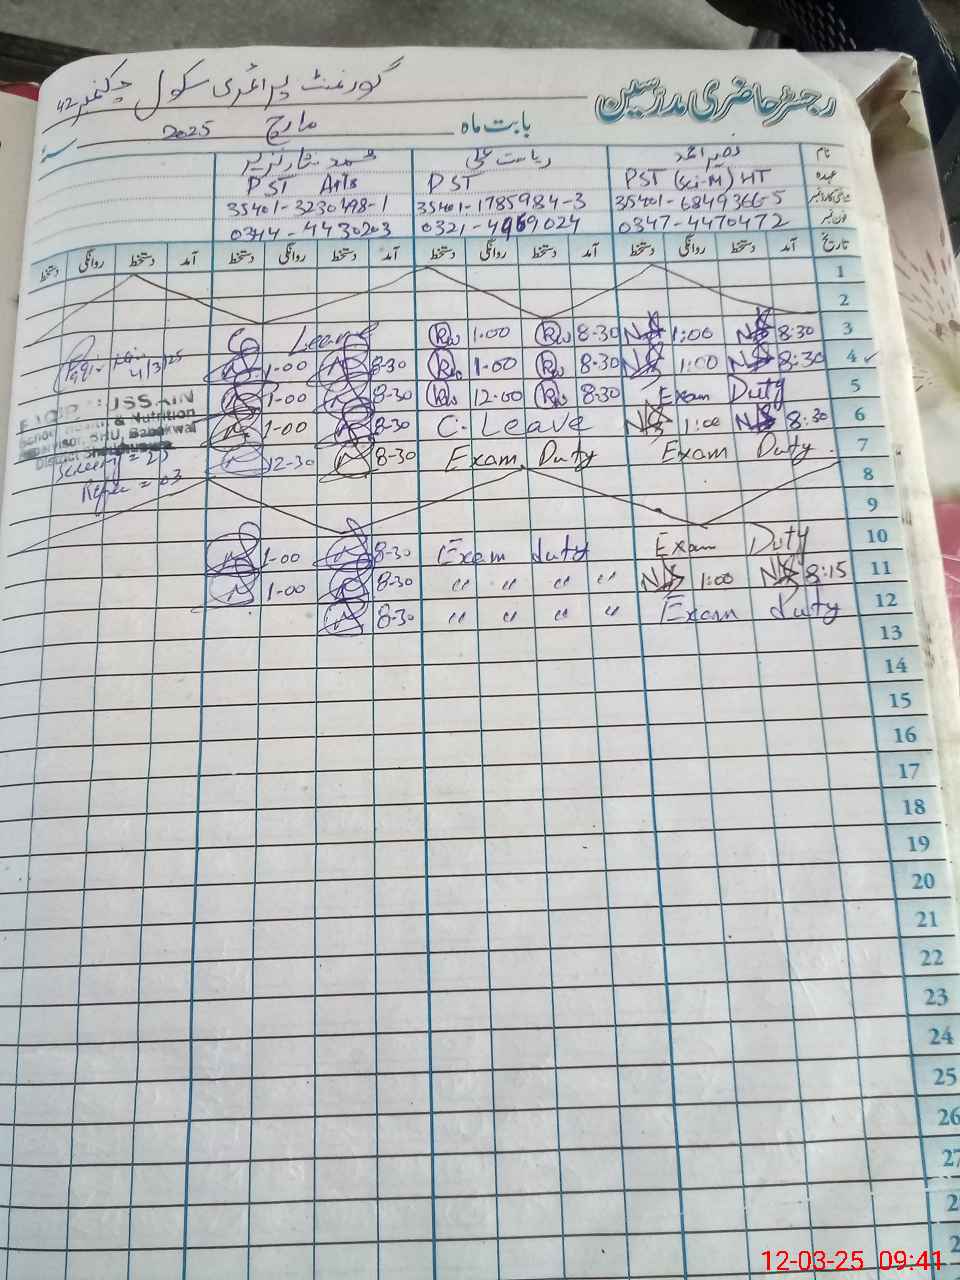 گورنمنٹ پرائمری سکول چکنمبر 42
رجسٹر حاضری مدرسین
بابت ماہ مارچ 2025
نام ریاست علی محمد
عہدہ PST (Sci-M) HT PST PST Arts
35401-6849366-5 35401-1785984-3 35401-3230498-1
فون نمبر 0347-4470472 0321-4969024 0344-4430203
تاریخ آمد دستخط روانگی دستخط آمد دستخط روانگی دستخط آمد دستخط روانگی دستخط آمد دستخط روانگی دستخط
1
2
3 8:30 1:00 8-30 1-00 C Leave
4 8:30 1:00 8-30 1-00 8-30 1-00 4/3/25
5 Exam Duty 8-30 12-00 8-30 1-00
6 8:30 1:00 C. Leave 8-30 1-00
7 Exam Duty Exam Duty 8-30 12-30
8
9
10 Exam Duty Exam duty 8-30 1-00
11 8:15 1:00 " " " " 8-30 1-00
12 Exam duty " " " " 8-30
13
14
15
16
17
18
19
20
21
22
23
24
25
26
27
JSSAIN
School Health & Nutrition
Supervisor, BHU, Babakwal
District
= 03
12-03-25 09:41